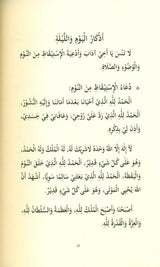 أَذْكَارُ الْيَوْمِ وَاللَّيْلَةِ
لَا تَنْسَ يَا أَخِي آدَابَ وَأَدْعِيَةَ الْاِسْتِيقَاظِ مِنَ النَّوْمِ
وَالْوُضُوءِ وَالصَّلَاةِ.
* دُعَاءُ الْاِسْتِيقَاظِ مِنَ النَّوْمِ:
الْحَمْدُ لِلَّهِ الَّذِي أَحْيَانَا بَعْدَمَا أَمَاتَنَا وَإِلَيْهِ النُّشُورُ،
الْحَمْدُ لِلَّهِ الَّذِي رَدَّ عَلَيَّ رُوحِي، وَعَافَانِي فِي جَسَدِي،
وَأَذِنَ لِي بِذِكْرِهِ.
لَا إِلَهَ إِلَّا اللَّهُ وَحْدَهُ لَا شَرِيكَ لَهُ، لَهُ الْمُلْكُ وَلَهُ الْحَمْدُ،
وَهُوَ عَلَى كُلِّ شَيْءٍ قَدِيرٌ، الْحَمْدُ لِلَّهِ الَّذِي خَلَقَ النَّوْمَ
وَالْيَقَظَةَ، الْحَمْدُ لِلَّهِ الَّذِي بَعَثَنِي سَالِمًا سَوِيًّا، أَشْهَدُ أَنَّ
اللَّهَ يُحْيِي الْمَوْتَى، وَهُوَ عَلَى كُلِّ شَيْءٍ قَدِيرٌ.
أَصْبَحْنَا وَأَصْبَحَ الْمُلْكُ لِلَّهِ، وَالْعَظَمَةُ وَالسُّلْطَانُ لِلَّهِ،
وَالْعِزَّةُ وَالْقُدْرَةُ لِلَّهِ.